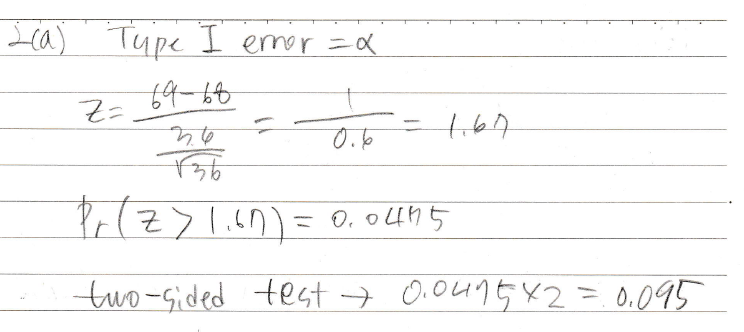 2(a) Type I error = α
Z = (69-68)/(3.6/√36) = 1/0.6 = 1.67
Pr(Z > 1.67) = 0.0475
two-sided test → 0.0475 × 2 = 0.095